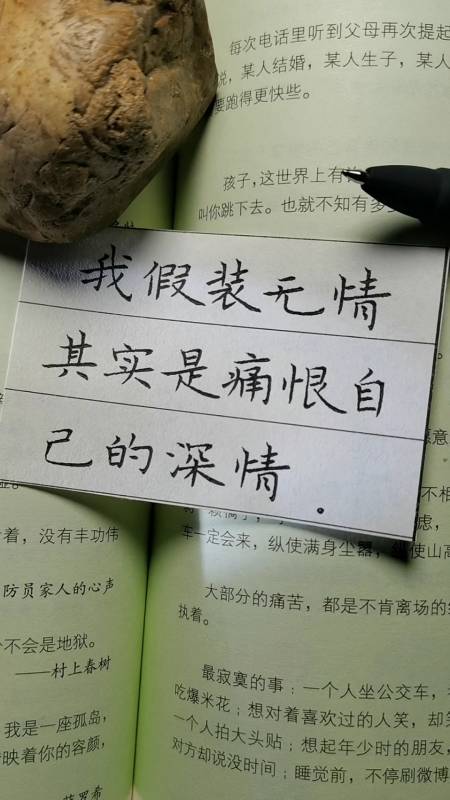 每次电话里听到父母再次提起
说，某人结婚，某人生子，某人
要跑得更快些。
孩子，这世界上有
叫你跳下去。也就不知有多
我假装无情
其实是痛恨自
己的深情.
着，没有丰功伟
防员家人的心声
不会是地狱。
——村上春树
我是一座孤岛，
映着你的容颜，
愿意
不相
虑，
车一定会来，纵使满身尘嚣，纵使山高
大部分的痛苦，都是不肯离场的
执着。
最寂寞的事：一个人坐公交车，
吃爆米花；想对着喜欢过的人笑，却
一个人拍大头贴；想起年少时的朋友，
对方却说没时间；睡觉前，不停刷微博